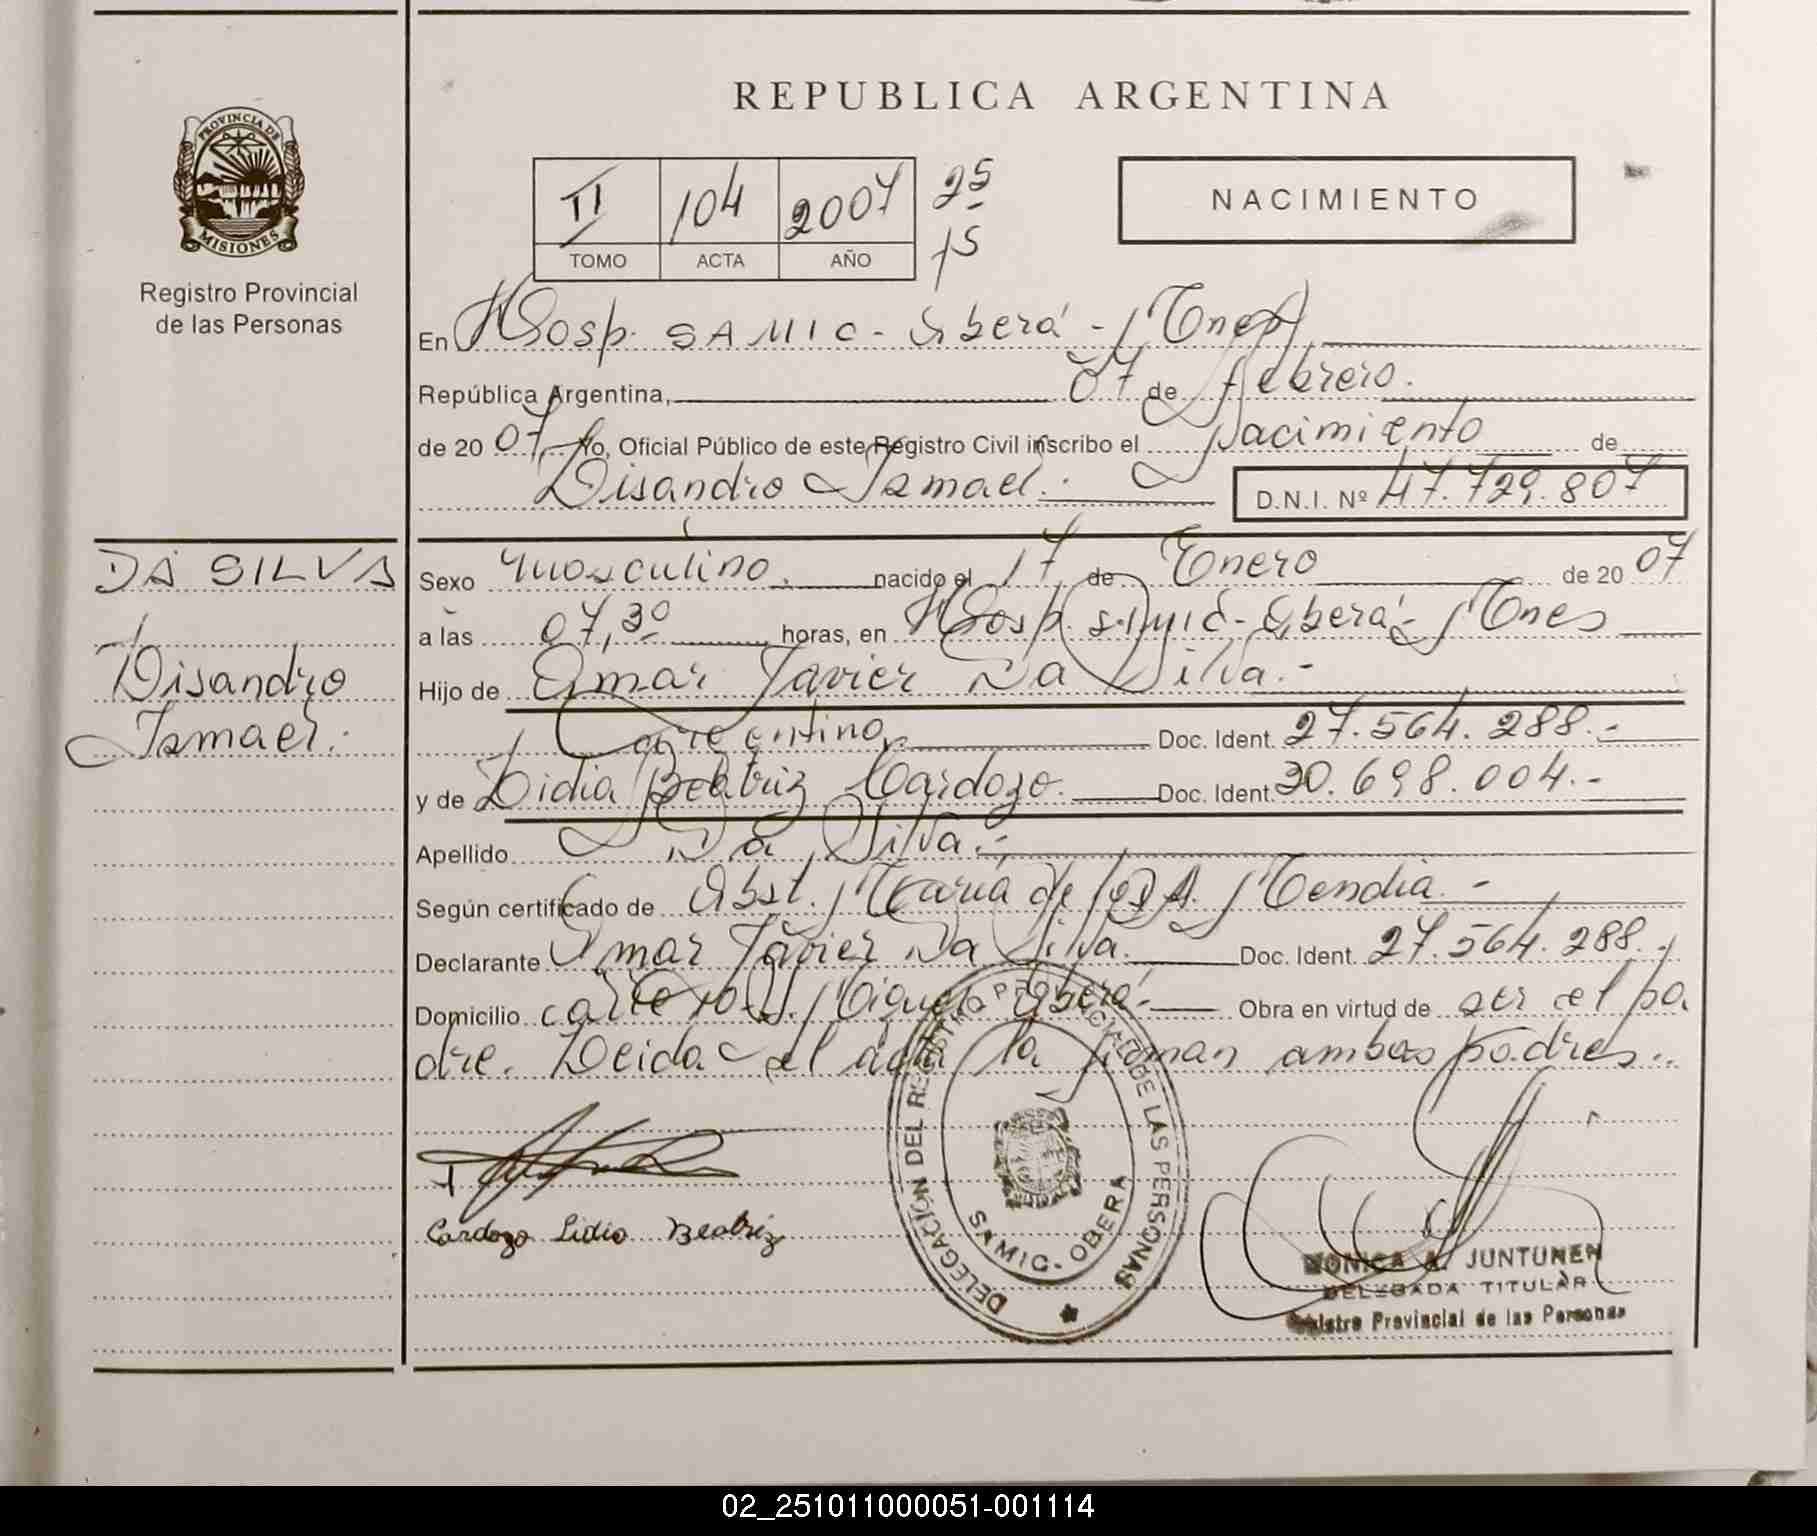 REPUBLICA ARGENTINA
PROVINCIA DE
MISIONES
Registro Provincial
de las Personas
II 104 2007 25
TOMO ACTA AÑO 15
NACIMIENTO
En Hosp. SAMIC - Oberá - Mnes
República Argentina, 07 de febrero.
de 20 07. Yo, Oficial Público de este Registro Civil inscribo el Nacimiento de
Lisandro Ismael.- D.N.I. Nº 47.729.807
DA SILVA
Lisandro
Ismael.-
Sexo masculino. nacido el 17 de Enero de 20 07
a las 07,30 horas, en Hosp. SAMIC - Oberá - Mnes
Hijo de Omar Javier Da Silva.-
argentino, Doc. Ident. 27.564.288.-
y de Lidia Beatriz Cardozo. Doc. Ident. 30.698.004.-
Apellido Da Silva.-
Según certificado de Obst. María de los A. Mendia.-
Declarante Omar Javier Da Silva. Doc. Ident. 27.564.288.-
Domicilio Oberá.- Obra en virtud de ser el pa
dre. Leida el acta la firman ambos padres..
Cardozo Lidia Beatriz
DELEGACIÓN DEL REGISTRO PROVINCIAL DE LAS PERSONAS
SAMIC - OBERA
MONICA A. JUNTUNEN
DELEGADA TITULAR
Registro Provincial de las Personas
02_251011000051-001114